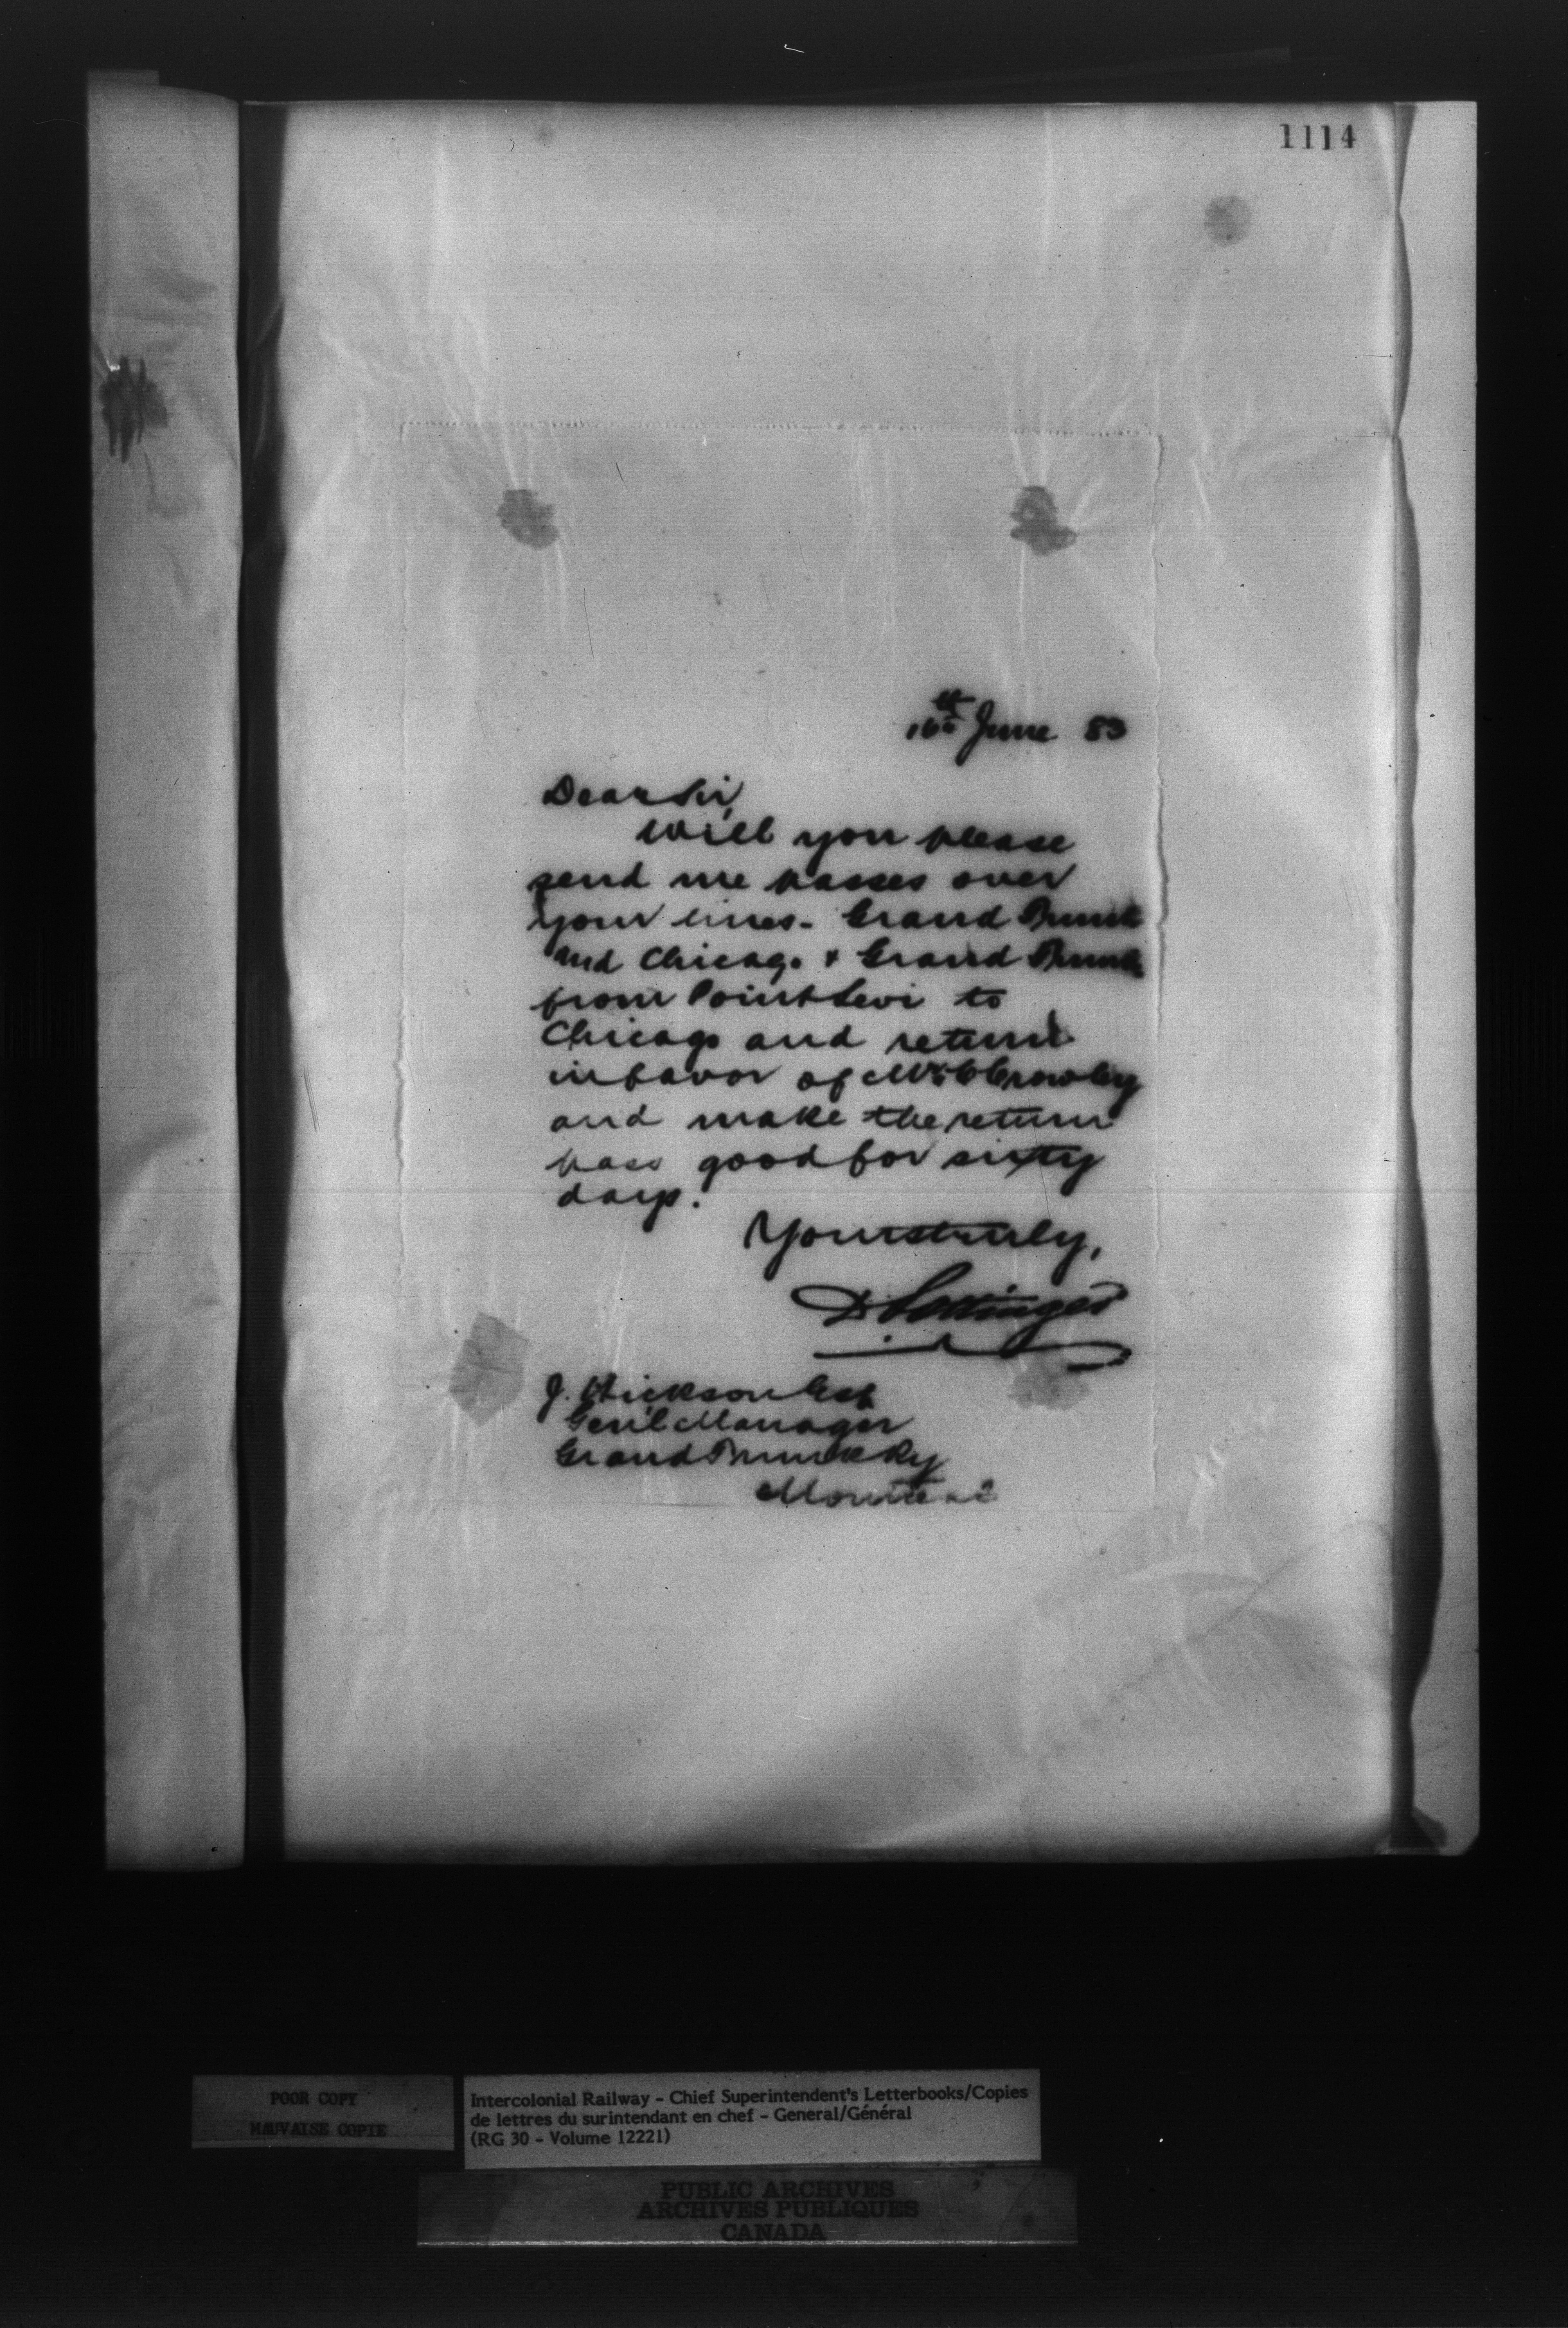 1114
16th June 83
Dear Sir,
Will you please
send me passes over
your lines - Grand Trunk
and Chicago & Grand Trunk
from Point Levi to
Chicago and return
in favor of Mr C Crowley
and make the return
pass good for sixty
days.
Yours truly,
D Pottinger
J. Hickson Esq
Gen'l Manager
Grand Trunk Ry
Montreal
POOR COPY
MAUVAISE COPIE
Intercolonial Railway - Chief Superintendent's Letterbooks/Copies
de lettres du surintendant en chef - General/Général
(RG 30 - Volume 12221)
PUBLIC ARCHIVES
ARCHIVES PUBLIQUES
CANADA